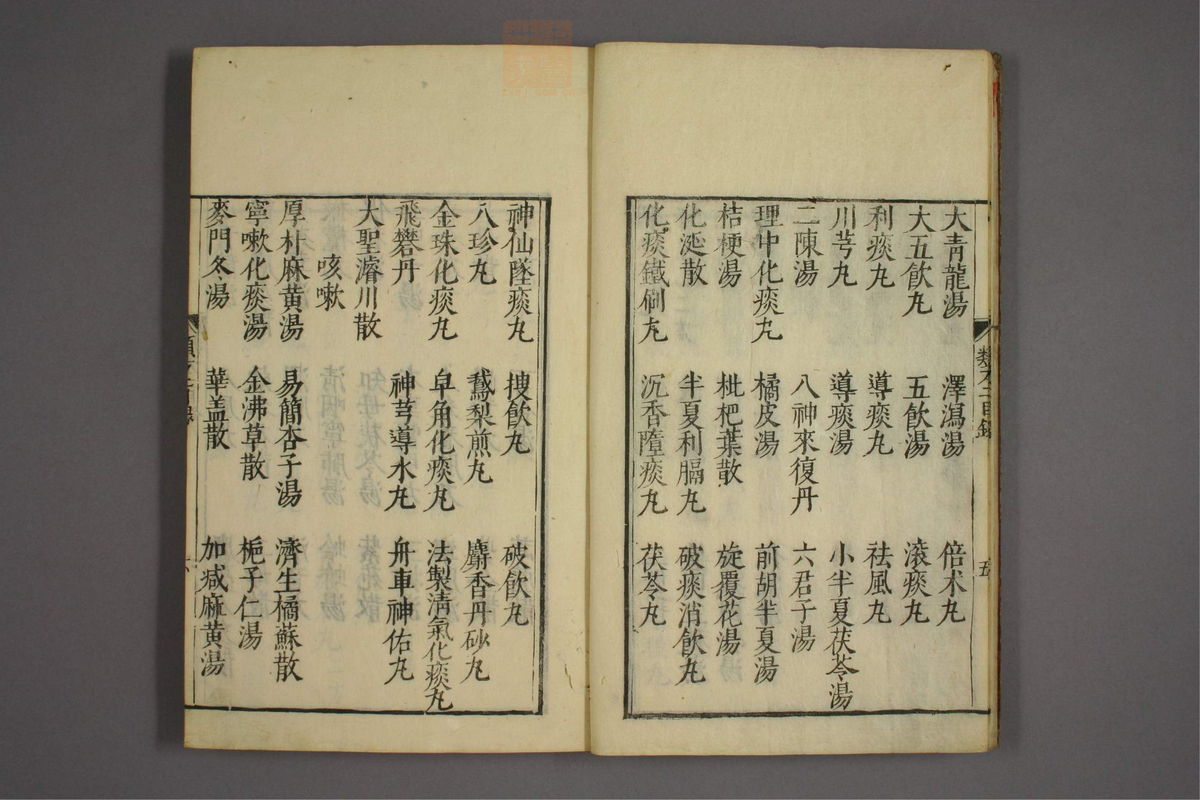 大青龍湯 澤瀉湯 倍术丸
大五飲丸 五飲湯 滚痰丸
利痰丸 導痰丸 祛風丸
川芎丸 導痰湯 小半夏茯苓湯
二陳湯 八神來復丹 六君子湯
理中化痰丸 橘皮湯 前胡半夏湯
桔梗湯 枇杷葉散 旋覆花湯
化涎散 半夏利膈丸 破痰消飲丸
化痰鐵刷丸 沉香墮痰丸 茯苓丸
神仙墜痰丸 搜飲丸 破飲丸
八珍丸 鵞梨煎丸 麝香丹砂丸
金珠化痰丸 皁角化痰丸 法製清氣化痰丸
飛礬丹 神芎導水丸 舟車神佑丸
大聖濬川散
咳嗽
厚朴麻黄湯 易簡杏子湯 濟生橘蘇散
寧嗽化痰湯 金沸草散 梔子仁湯
麥門冬湯 華盖散 加减麻黄湯